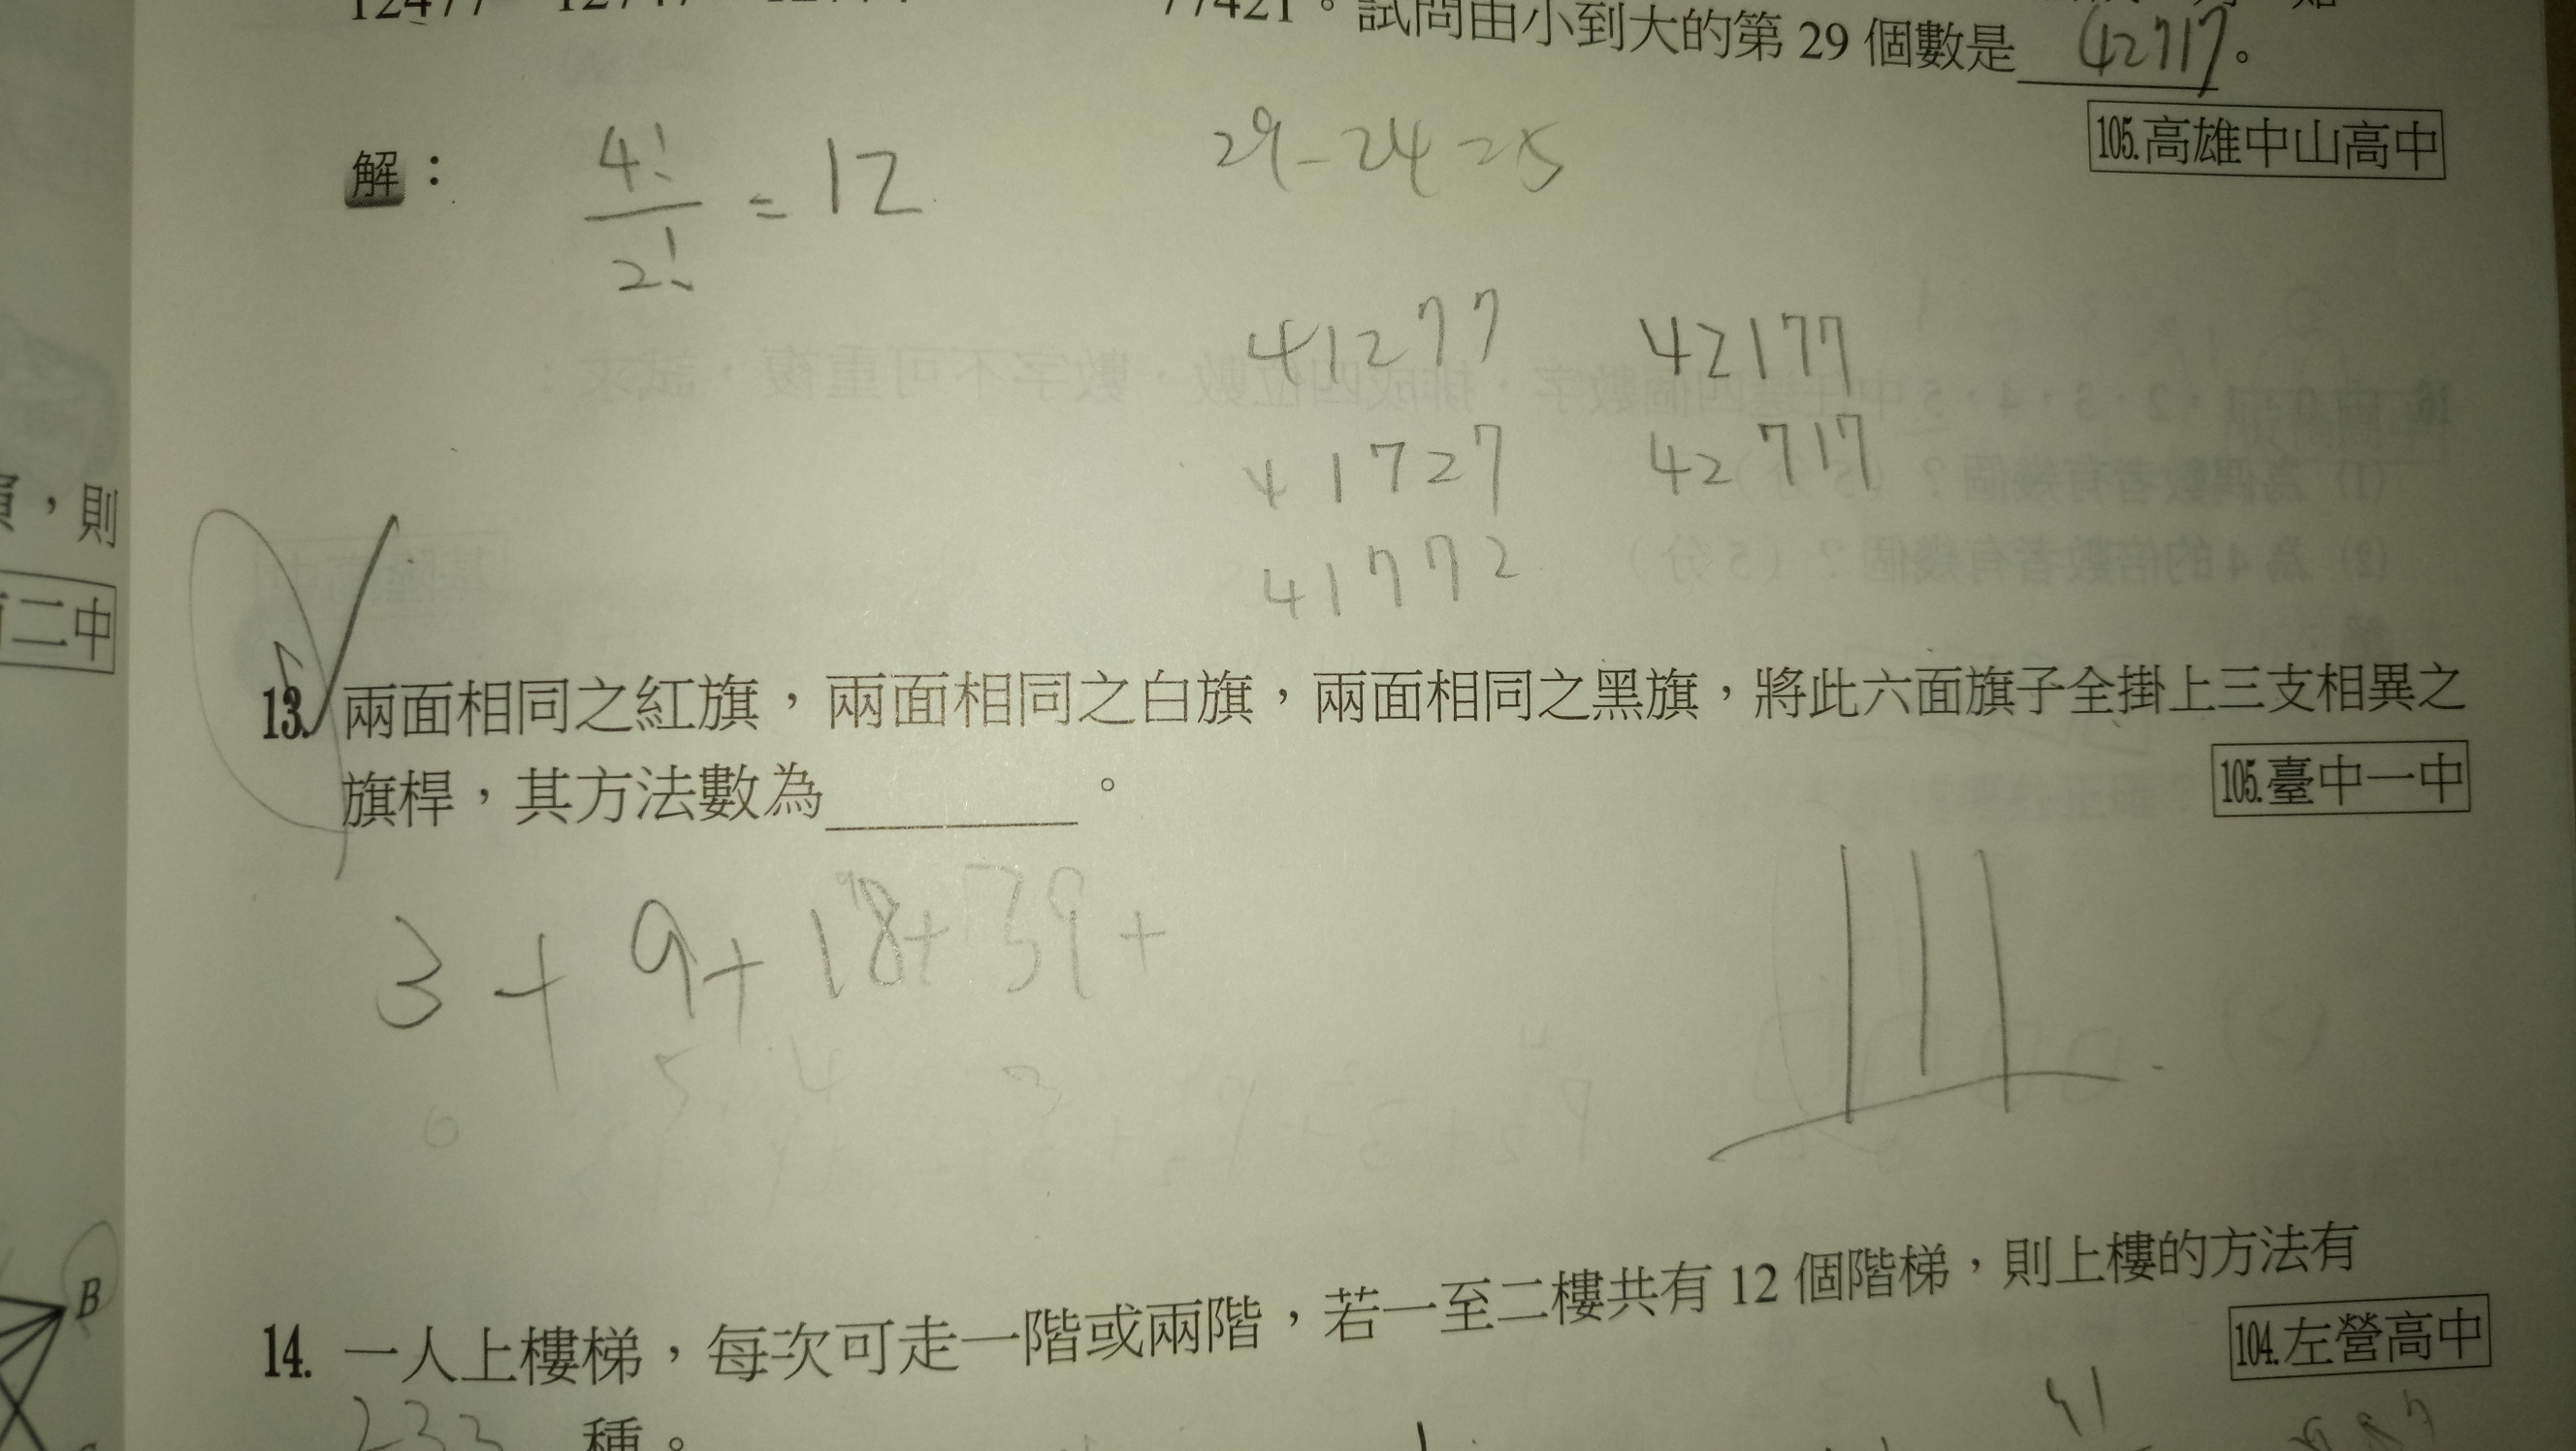 77421。試問由小到大的第 29 個數是 42717。
105.高雄中山高中
解：
4!
2!
= 12
29 - 24 = 5
41277 42177
41727 42717
41772
，則
二中
13. 兩面相同之紅旗，兩面相同之白旗，兩面相同之黑旗，將此六面旗子全掛上三支相異之
旗桿，其方法數為 。
105.臺中一中
3 + 9 + 18 + 39 +
6 5 4 3
B
14. 一人上樓梯，每次可走一階或兩階，若一至二樓共有 12 個階梯，則上樓的方法有
104.左營高中
233 種。